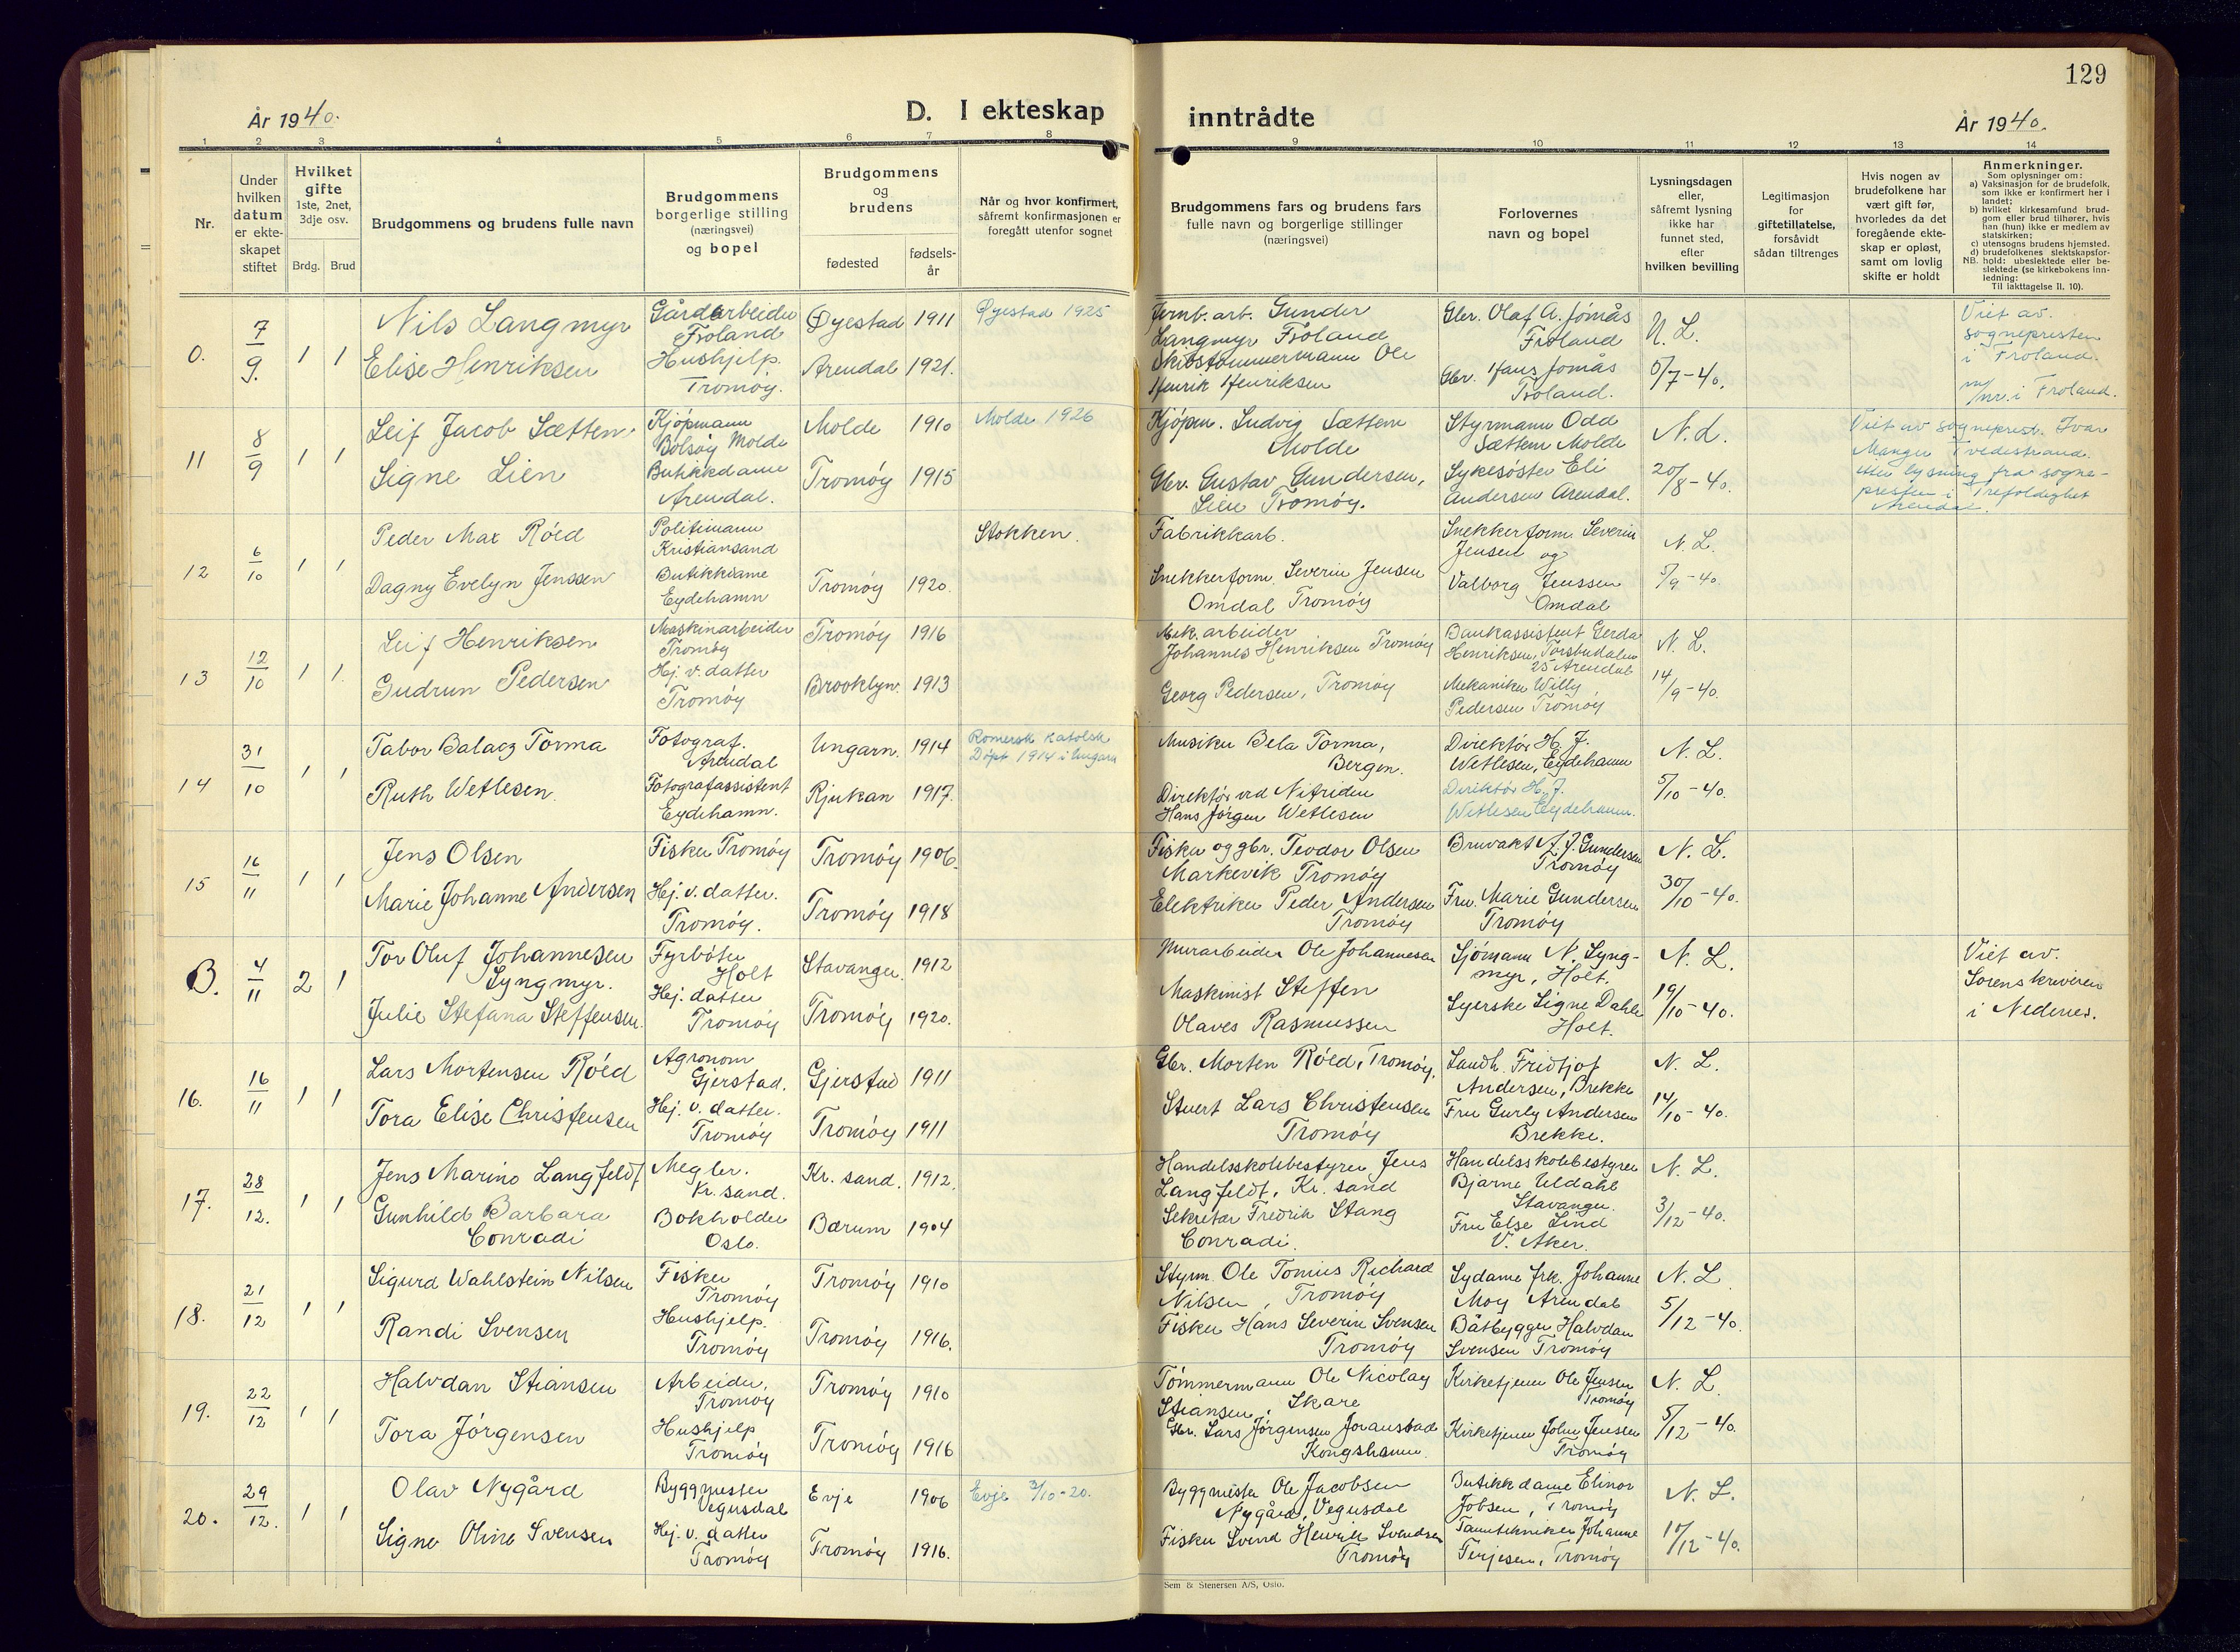 129
År 1940.
D. I ekteskap inntrådte
År 1940.
1 2 3 4 5 6 7 8 9 10 11 12 13 14
Nr.
Under
hvilken
datum
er ekte-
skapet
stiftet
Hvilket
gifte
1ste, 2net,
3dje osv.
Brdg. Brud
Brudgommens og brudens fulle navn
Brudgommens
borgerlige stilling
(næringsvei)
og bopel
Brudgommens
og
brudens
fødested
fødsels-
år
Når og hvor konfirmert,
såfremt konfirmasjonen er
foregått utenfor sognet
Brudgommens fars og brudens fars
fulle navn og borgerlige stillinger
(næringsvei)
Forlovernes
navn og bopel
Lysningsdagen
eller,
såfremt lysning
ikke har
funnet sted,
efter
hvilken bevilling
Legitimasjon
for
giftetillatelse,
forsåvidt
sådan tiltrenges
Hvis nogen av
brudefolkene har
vært gift før,
hvorledes da det
foregående ekte-
skap er opløst,
samt om lovlig
skifte er holdt
Anmerkninger.
Som oplysninger om:
a) Vaksinasjon for de brudefolk,
som ikke er konfirmert her i
landet;
b) hvilket kirkesamfund brud-
gom eller brud tilhører, hvis
han (hun) ikke er medlem av
statskirken;
c) utensogns brudens hjemsted.
d) brudefolkenes slektskapsfor-
hold: ubeslektede eller be-
slektede (se kirkebokens inn-
ledning:
NB.
Til iakttagelse II. 10).
0.
7/9.
1 1
Nils Langmyr
Elise Henriksen
Gårdarbeider
Froland
Hushjelp.
Tromøy.
Øyestad 1911
Arendal 1921.
Øyestad 1925
Jernb. arb. Gunder
Langmyr Froland
Skibstømmermann Ole
Henrik Henriksen
Gbr. Olaf A. Jomås
Froland
Gbr. Hans Jomås
Froland.
N. L.
5/7-40.
Viet av.
sognepresten
i Froland.
m/nr. i Froland.
11
8/9
1 1
Leif Jacob Sættem
Signe Lien
Kjøpmann
Bolsøy Molde
Butikkdame
Arendal.
Molde 1910
Tromøy 1915
Molde 1926
Kjøpm. Ludvig Sættem
Molde
Gbr. Gustav Gundersen,
Lien Tromøy.
Styrmann Odd
Sættem Molde
Sykesøster Eli
Andersen Arendal.
N. L.
20/8-40.
Viet av sogneprest. Ivar
Manger Tvedestrand.
etter lysning fra sogne-
presten i Trefoldighet
Arendal.
12
6/10
1 1
Peder Max Röed
Dagny Evelyn Jenssen
Politimann
Kristiansand
Butikkdame
Eydehamn
Tromøy 1920.
Stokken.
Fabrikkarb.
Snekkerform. Severin Jensen
Omdal Tromøy
Snekkerform. Severin
Jensen og
Valborg Jenssen
Omdal
N. L.
5/9-40.
13
12/10
1 1.
Leif Henriksen
Gudrun Pedersen
Maskinarbeider
Tromøy
Hj. v. datter
Tromøy
Tromøy 1916
Brooklyn. 1913
Mek. arbeider
Johannes Henriksen Tromøy
Georg Pedersen, Tromøy
Bankassistent Gerda
Henriksen, Torsbudalen
25 Arendal
Mekaniker Willy
Pedersen Tromøy
N. L.
14/9-40.
14
31/10
1 1
Tabor Balacz Torma
Ruth Wetlesen.
Fotograf.
Arendal
Fotografassistent
Eydehamn.
Ungarn. 1914
Rjukan 1917.
Romersk katolsk
Døpt 1914 i Ungarn
Musiker Bela Torma,
Bergen.
Direktør ved Nitriden
Hans Jørgen Wetlesen
Direktør H. J.
Wetlesen, Eydehamn
Direktör H. J.
Wetlesen Eydehamn.
N. L.
5/10-40.
15
16/11
1 1
Jens Olsen
Marie Johanne Andersen
Fisker Tromøy
Hej. v. datter.
Tromøy.
Tromøy 1906.
Tromøy 1918
Fisker og gbr. Teodor Olsen
Markevik Tromøy
Elektriker Peder Andersen
Tromøy
Bruvakt A. J. Gundersen
Tromøy
Fru Marie Gundersen
Tromøy
N. L.
30/10-40.
B.
4/11
2 1
Tor Oluf Johannesen
Lyngmyr.
Julie Stefana Steffensen.
Fyrbøter
Holt
Hej. datter
Tromøy
Stavanger. 1912
Tromøy 1920.
Murarbeider Ole Johannesen
Maskinist Steffen
Olaves Rasmussen
Sjømann N. Lyng-
myr, Holt.
Syerske Signe Dahle
Holt.
N. L.
19/10-40.
Viet av.
Sorenskriveren
i Nedenes.
16.
16/11
1 1
Lars Mortensen Röed
Tora Elise Christensen
Agronom
Gjerstad.
Hej. v. datter.
Tromøy
Gjerstad 1911
Tromøy 1911
Gbr. Morten Röed, Tromøy.
Stuert Lars Christensen
Tromøy
Landh. Fridtjof
Andersen, Brekke
Fru Gurly Andersen
Brekke.
N. L.
14/10-40.
17.
28/12.
1 1
Jens Marino Langfeldt
Gunhild Barbara
Conradi
Megler.
Kr. sand.
Bokholder
Oslo.
Kr. sand. 1912.
Bærum 1904
Handelsskolebestyrer Jens
Langfeldt, Kr. sand
Sekretær Fredrik Stang
Conradi.
Handelsskolebestyrer
Bjarne Uldahl
Stavanger.
Fru Else Lind
V. Aker.
N. L.
3/12-40.
18.
21/12
1 1
Sigurd Wahlstein Nilsen
Randi Svensen
Fisker
Tromøy
Hushjelp.
Tromøy
Tromøy 1910
Tromøy 1916.
Styrm. Ole Tomius Richard
Nilsen, Tromøy
Fisker Hans Severin Svensen
Tromøy
Sydame frk. Johanne
Moy Arendal
Båtbygger Halvdan
Svensen Tromøy
N. L.
5/12-40.
19.
22/12
1 1
Halvdan Stiansen
Tora Jörgensen
Arbeider,
Tromøy
Hushjelp
Tromøy
Tromøy 1910
Tromøy 1916
Tømmermann Ole Nicolay
Stiansen, Skare
Gbr. Lars Jørgensen Joranstad
Kongshamn.
Kirketjener Ole Jensen
Tromøy
Kirketjener John Jensen
Tromøy
N. L.
5/12-40.
20.
29/12.
1 1
Olav Nygård
Signe Oline Svensen
Byggmester
Vegusdal
Hej. v. datter
Tromøy
Evje 1906
Tromøy 1916.
Evje 3/10-20.
Byggmester Ole Jacobsen
Nygård, Vegusdal
Fisker Svend Henrik Svendsen
Tromøy
Butikkdame Elinor
Jobsen, Tromøy
Tanntekniker Johanne
Terjesen, Tromøy
N. L.
10/12-40.
Sem & Stenersen A/S, Oslo.